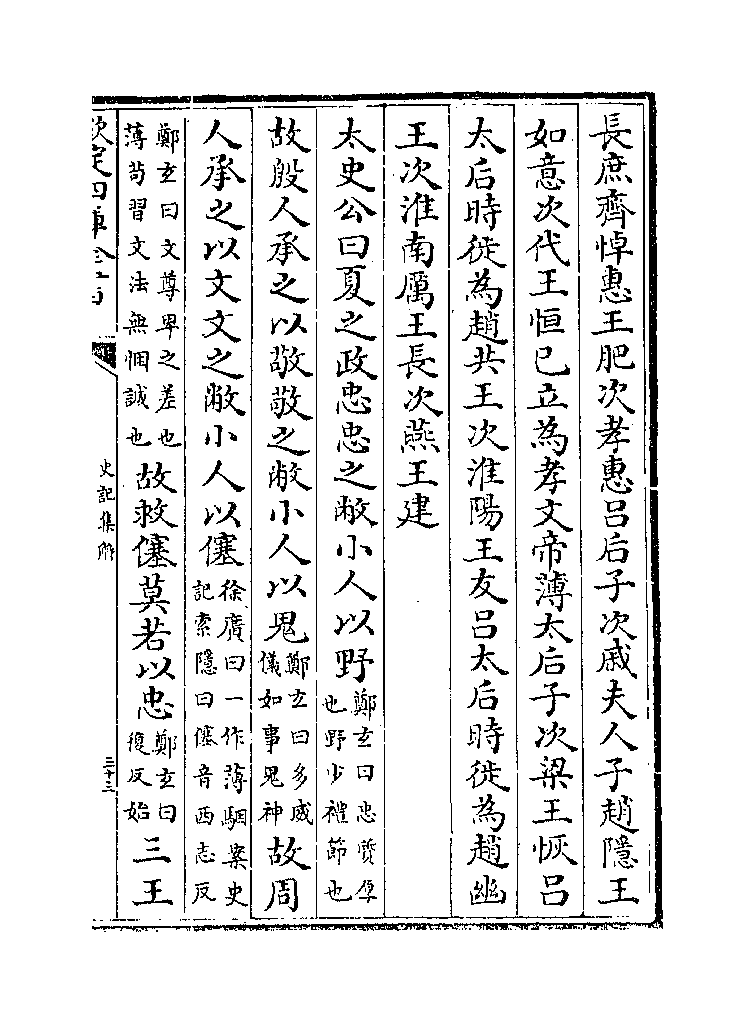 長庶齊悼惠王肥次孝惠吕后子次戚夫人子趙隱王
如意次代王恒已立為孝文帝薄太后子次梁王恢吕
太后時徙為趙共王次淮陽王友吕太后時徙為趙幽
王次淮南厲王長次燕王建
太史公曰夏之政忠忠之敝小人以野鄭玄曰忠質厚也野少禮節也
故殷人承之以敬敬之敝小人以鬼鄭玄曰多威儀如事鬼神故周
人承之以文文之敝小人以僿徐廣曰一作薄駰案史記索隱曰僿音西志反
鄭玄曰文尊卑之差也薄茍習文法無悃誠也故救僿莫若以忠鄭玄曰復反始三王
欽定四庫全書
史記集解
三十三